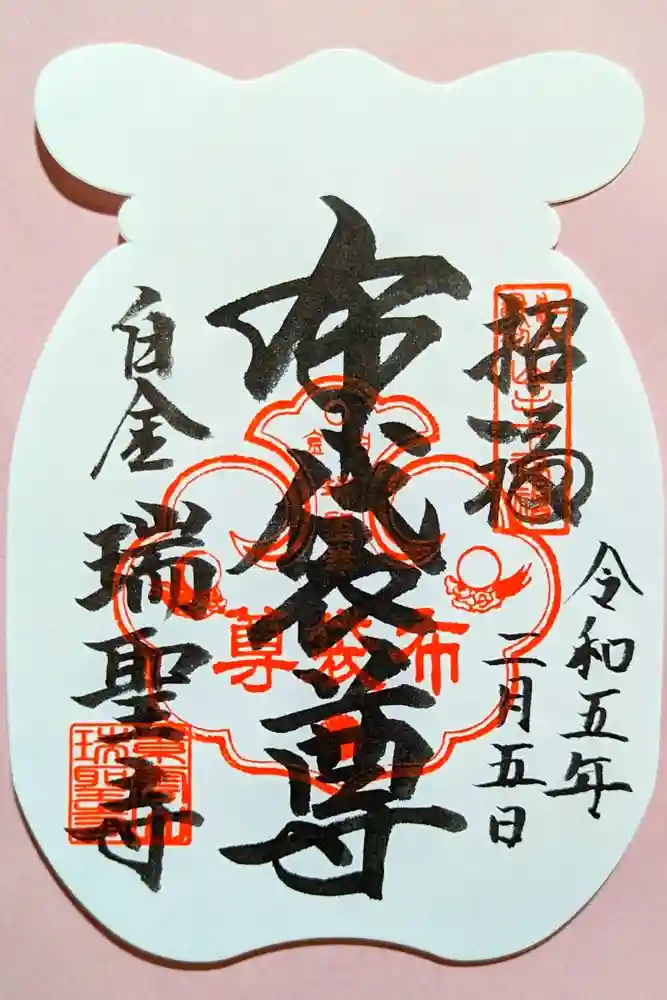 令和五年
二月五日
招福
布袋尊
布袋尊
白金
瑞聖寺